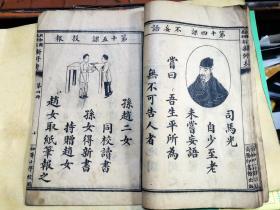 第十四課 不妄語
司馬光
自少至老
未嘗妄語
嘗曰吾生平所為
無不可告人者
第十五課 投報
孫趙二女
同校讀書
孫女得新書
持贈趙女
趙女取紙筆報之